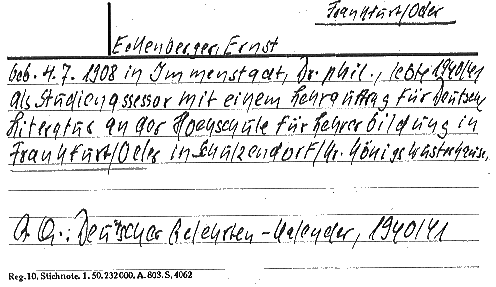 Frankfurt/Oder
Ecklenberger, Ernst
geb. 4.7. 1908 in Immenstadt, Dr. phil., lebte 1940/41
als Studienassessor mit einem Lehrauftrag für Deutsche
Literatur an der Hochschule für Lehrerbildung in
Frankfurt/Oder in Schulzendorf/Kr. Königswusterhausen
Qu.: Deutscher Gelehrten-Kalender, 1940/41
Reg. 10, Stichnote. 1. 50. 232000. A. 803. S. 4062